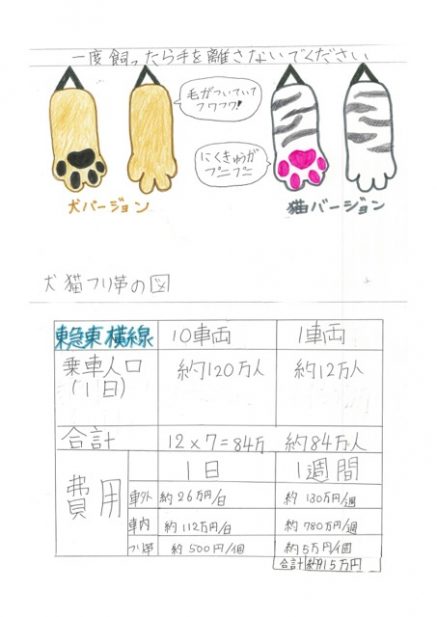 一度飼ったら手を離さないでください
毛がついていて
フワフワ!
にくきゅうが
プニプニ
犬バージョン
猫バージョン
犬猫フリ革の図
東急東横線 10車両 1車両
乗車人口
(1日) 約120万人 約12万人
合計 12×7=84万 約84万人
費用 1日 1週間
車外 約26万円/日 約130万円/週
車内 約112万円/日 約780万円/週
約500円/個 約5万円/個
合計 約915万円